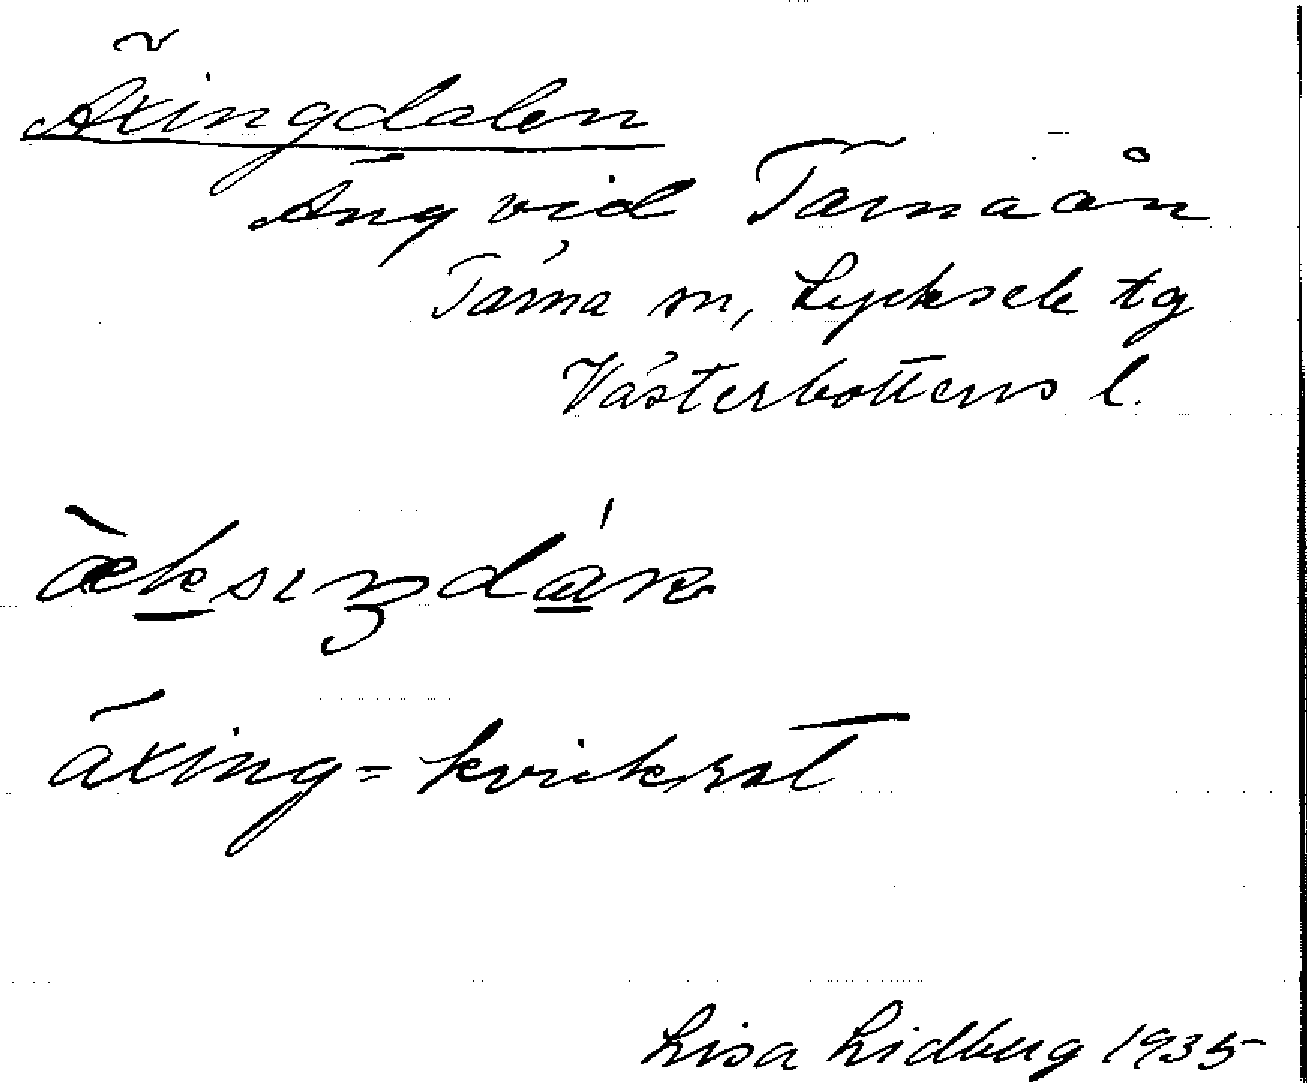 Äxingdalen
Äng vid Tärnaån
Tärna sn, Lycksele tg
Västerbottens l.
äxing = kvickrot
Lisa Lidberg 1935